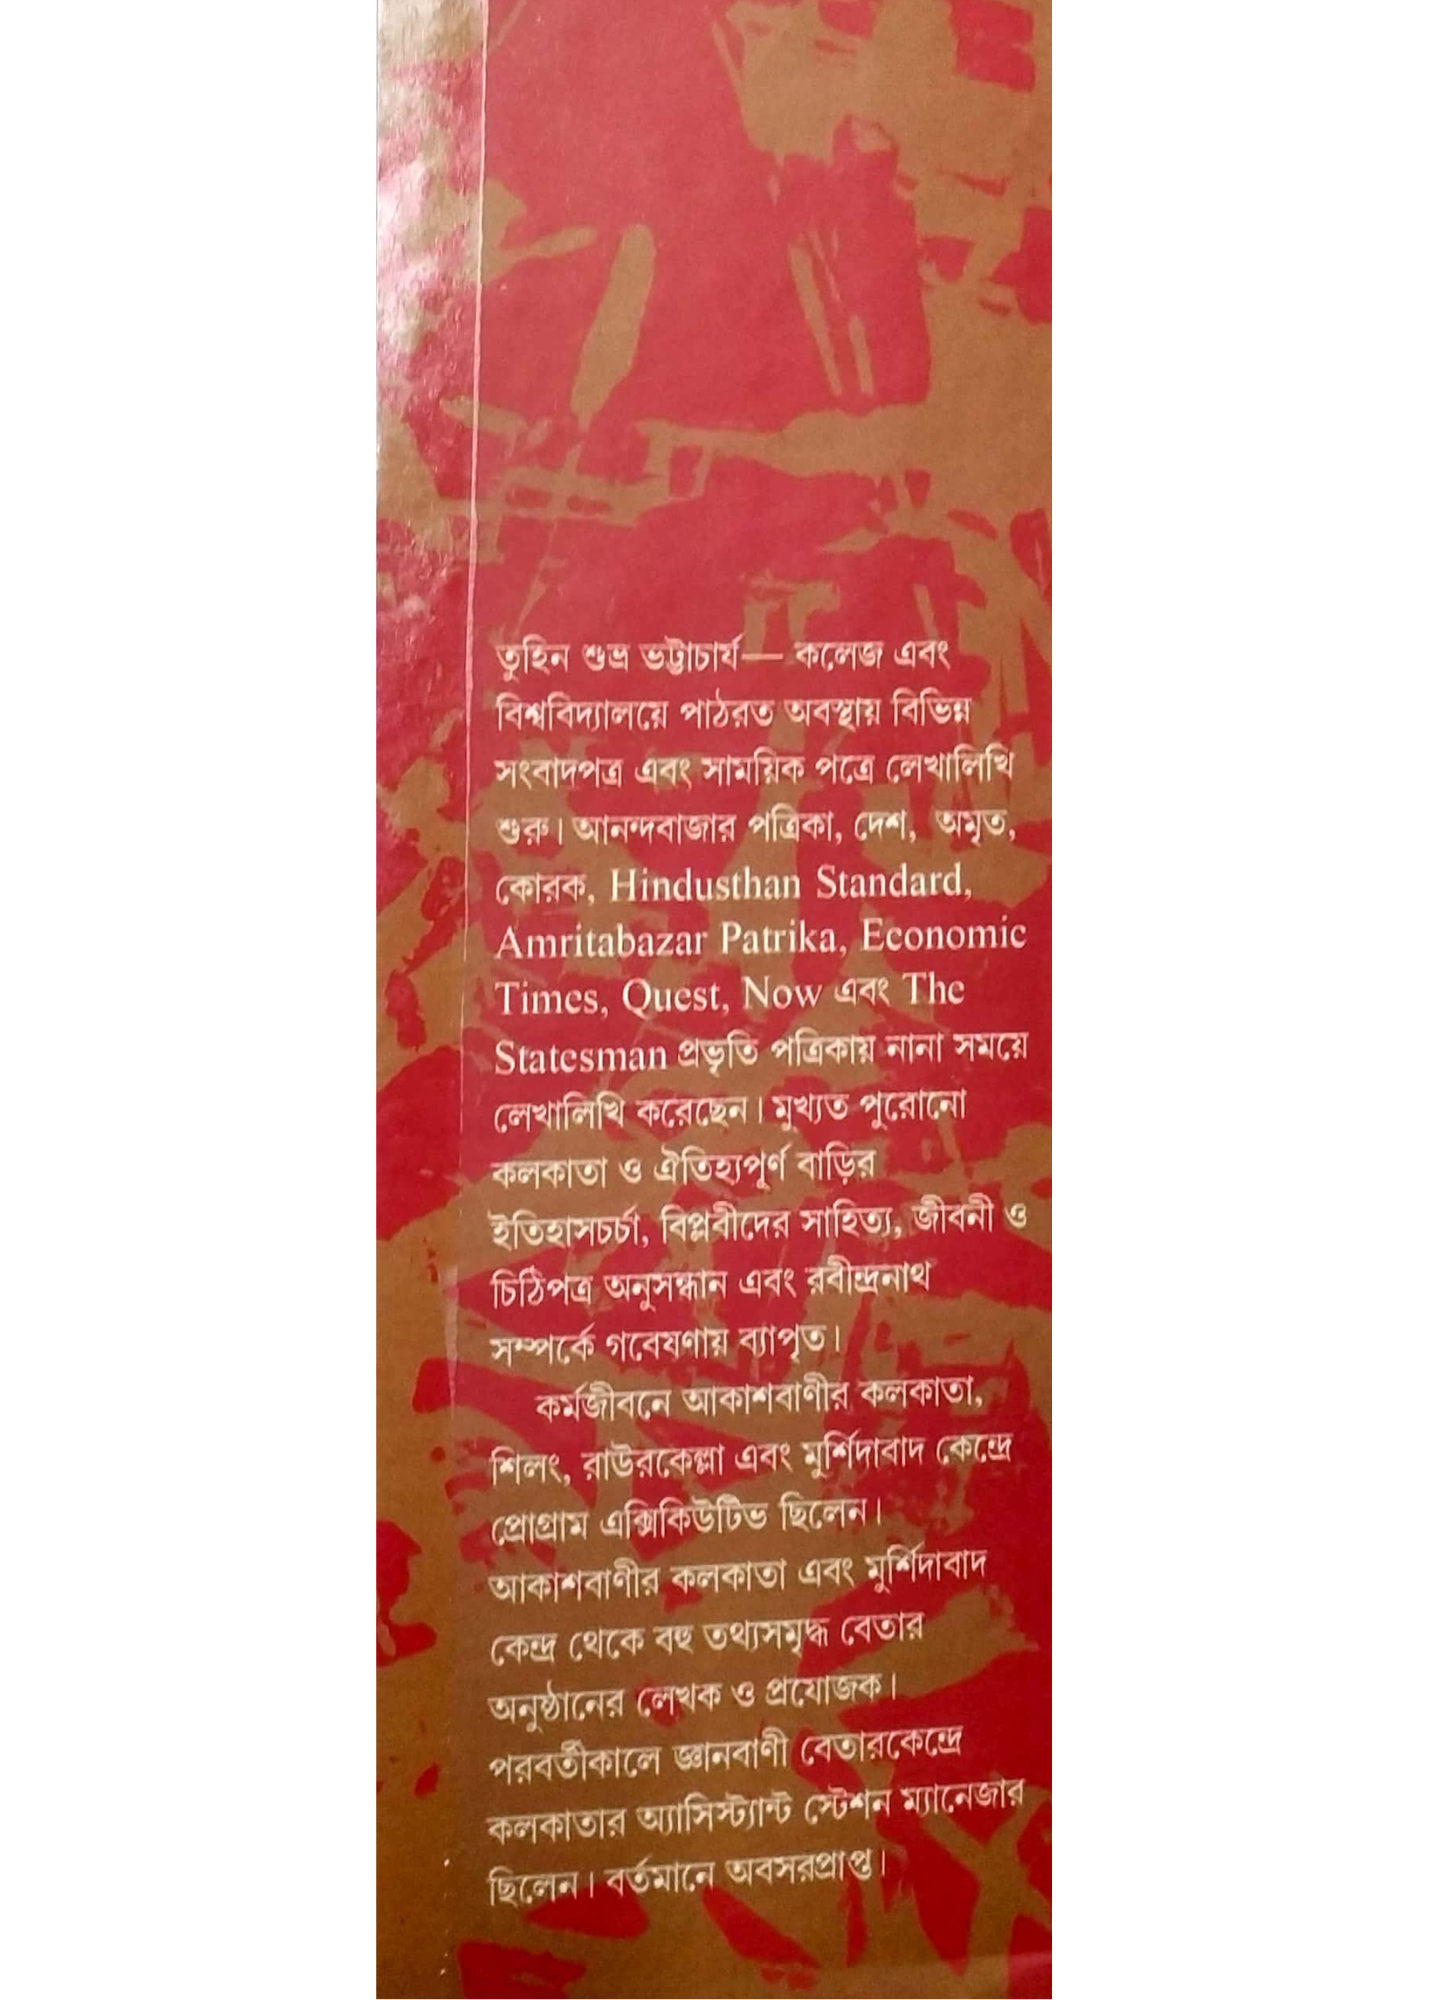 তুহিন শুভ্র ভট্টাচার্য— কলেজ এবং
বিশ্ববিদ্যালয়ে পাঠরত অবস্থায় বিভিন্ন
সংবাদপত্র এবং সাময়িক পত্রে লেখালিখি
শুরু। আনন্দবাজার পত্রিকা, দেশ, অমৃত,
কোরক, Hindusthan Standard,
Amritabazar Patrika, Economic
Times, Quest, Now এবং The
Statesman প্রভৃতি পত্রিকায় নানা সময়ে
লেখালিখি করেছেন। মুখ্যত পুরোনো
কলকাতা ও ঐতিহ্যপূর্ণ বাড়ির
ইতিহাসচর্চা, বিপ্লবীদের সাহিত্য, জীবনী ও
চিঠিপত্র অনুসন্ধান এবং রবীন্দ্রনাথ
সম্পর্কে গবেষণায় ব্যাপৃত।
কর্মজীবনে আকাশবাণীর কলকাতা,
শিলং, রাউরকেল্লা এবং মুর্শিদাবাদ কেন্দ্রে
প্রোগ্রাম এক্সিকিউটিভ ছিলেন।
আকাশবাণীর কলকাতা এবং মুর্শিদাবাদ
কেন্দ্র থেকে বহু তথ্যসমৃদ্ধ বেতার
অনুষ্ঠানের লেখক ও প্রযোজক।
পরবর্তীকালে জ্ঞানবাণী বেতারকেন্দ্রে
কলকাতার অ্যাসিস্ট্যান্ট স্টেশন ম্যানেজার
ছিলেন। বর্তমানে অবসরপ্রাপ্ত।